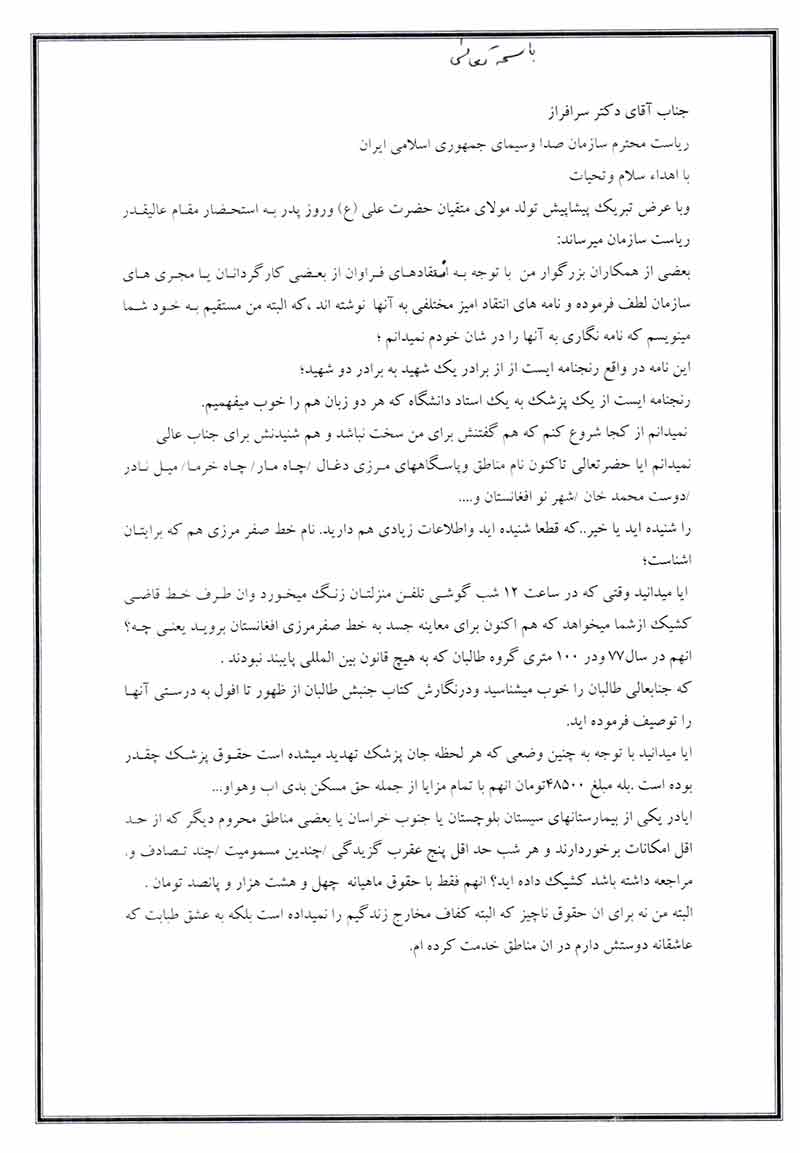 باسمه تعالی
جناب آقای دکتر سرافراز
ریاست محترم سازمان صدا وسیمای جمهوری اسلامی ایران
با اهداء سلام وتحیات
وبا عرض تبریک پیشاپیش تولد مولای متقیان حضرت علی (ع) وروز پدر به استحضار مقام عالیقدر
ریاست سازمان میرساند:
بعضی از همکاران بزرگوار من با توجه به انتقادهای فراوان از بعضی کارگردانان یا مجری های
سازمان لطف فرموده و نامه های انتقاد امیز مختلفی به آنها نوشته اند ،که البته من مستقیم به خود شما
مینویسم که نامه نگاری به آنها را در شان خودم نمیدانم ؛
این نامه در واقع رنجنامه ایست از از برادر یک شهید به برادر دو شهید؛
رنجنامه ایست از یک پزشک به یک استاد دانشگاه که هر دو زبان هم را خوب میفهمیم.
نمیدانم از کجا شروع کنم که هم گفتنش برای من سخت نباشد و هم شنیدنش برای جناب عالی
نمیدانم ایا حضرتعالی تاکنون نام مناطق وپاسگاههای مرزی دغال /چاه مار/ چاه خرما/ میل نادر
/دوست محمد خان /شهر نو افغانستان و....
را شنیده اید یا خیر..که قطعا شنیده اید واطلاعات زیادی هم دارید. نام خط صفر مرزی هم که برایتان
اشناست؛
ایا میدانید وقتی که در ساعت ۱۲ شب گوشی تلفن منزلتان زنگ میخورد وان طرف خط قاضی
کشیک ازشما میخواهد که هم اکنون برای معاینه جسد به خط صفرمرزی افغانستان بروید یعنی چه؟
انهم در سال۷۷ ودر ۱۰۰ متری گروه طالبان که به هیچ قانون بین المللی پایبند نبودند .
که جنابعالی طالبان را خوب میشناسید ودرنگارش کتاب جنبش طالبان از ظهور تا افول به درستی آنها
را توصیف فرموده اید.
ایا میدانید با توجه به چنین وضعی که هر لحظه جان پزشک تهدید میشده است حقوق پزشک چقدر
بوده است .بله مبلغ ۴۸۵۰۰تومان انهم با تمام مزایا از جمله حق مسکن بدی اب وهواو...
ایادر یکی از بیمارستانهای سیستان بلوچستان یا جنوب خراسان یا بعضی مناطق محروم دیگر که از حد
اقل امکانات برخوردارند و هر شب حد اقل پنج عقرب گزیدگی /چندین مسمومیت /چند تصادف و.
مراجعه داشته باشد کشیک داده اید؟ انهم فقط با حقوق ماهیانه چهل و هشت هزار و پانصد تومان .
البته من نه برای ان حقوق ناچیز که البته کفاف مخارج زندگیم را نمیداده است بلکه به عشق طبابت که
عاشقانه دوستش دارم در ان مناطق خدمت کرده ام.